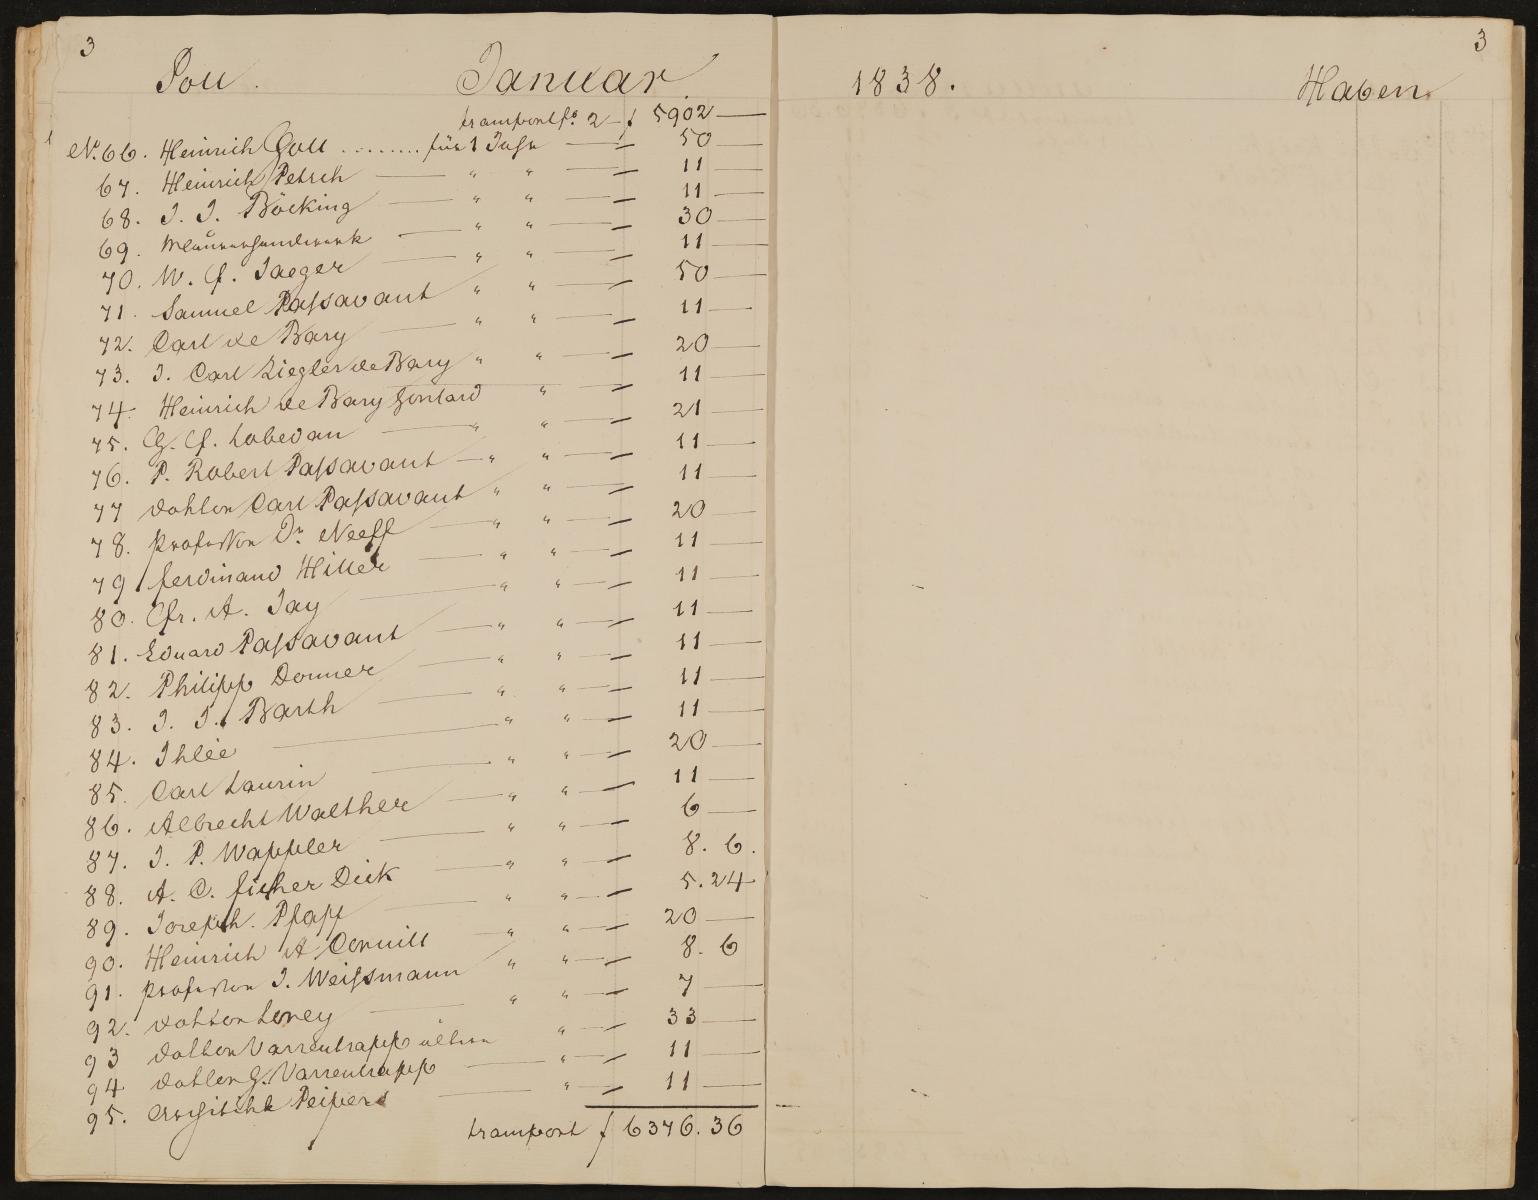 3
Soll. Januar
transport fo. 2 f 5902 —
No. 66. Heinrich Goll ........ für 1 Jahr — 50 —
67. Heinrich Petsch — " " — 11 —
68. I. I. Böcking — " " — 11 —
69. Maurerhandwerk — " " — 30 —
70. W. f. Jaeger — " " — 11 —
71. Samuel Paſsavant " " — 50 —
72. Carl de Bary — " " — 11 —
73. I. Carl Ziegler de Bary " " — 20 —
74. Heinrich de Bary Gontard " — 11 —
75. G. f. Lobedan — " " — 21 —
76. P. Robert Paſsavant — " " — 11 —
77 doktor Carl Paſsavant " " — 11 —
78. professor Dr. Neeff — " " — 20 —
79 ferdinand Hiller — " " — 11 —
80. fr. A. Jay — " " — 11 —
81. Eduard Paſsavant — " " — 11 —
82. Philipp Donner — " " — 11 —
83. I. I. Barth — " " — 11 —
84. Ihlée — " " — 11 —
85. Carl Laurin — " " — 20 —
86. Albrecht Walther — " " — 11 —
87. I. P. Wappler — " " — 6 —
88. A. C. fischer Dick — " " — 8. 6.
89. Joseph Pfaff — " " — 5. 24
90. Heinrich A. Cornill — " " — 20 —
91. professor I. Weiſsmann " " — 8. 6
92. doktor Lorey — " " — 7 —
93 doktor Varrentrapp älter " — 33 —
94 doktor G. Varrentrapp — " — 11 —
95. Peipers — " — 11 —
transport f 6376. 36
3
1838. Haben